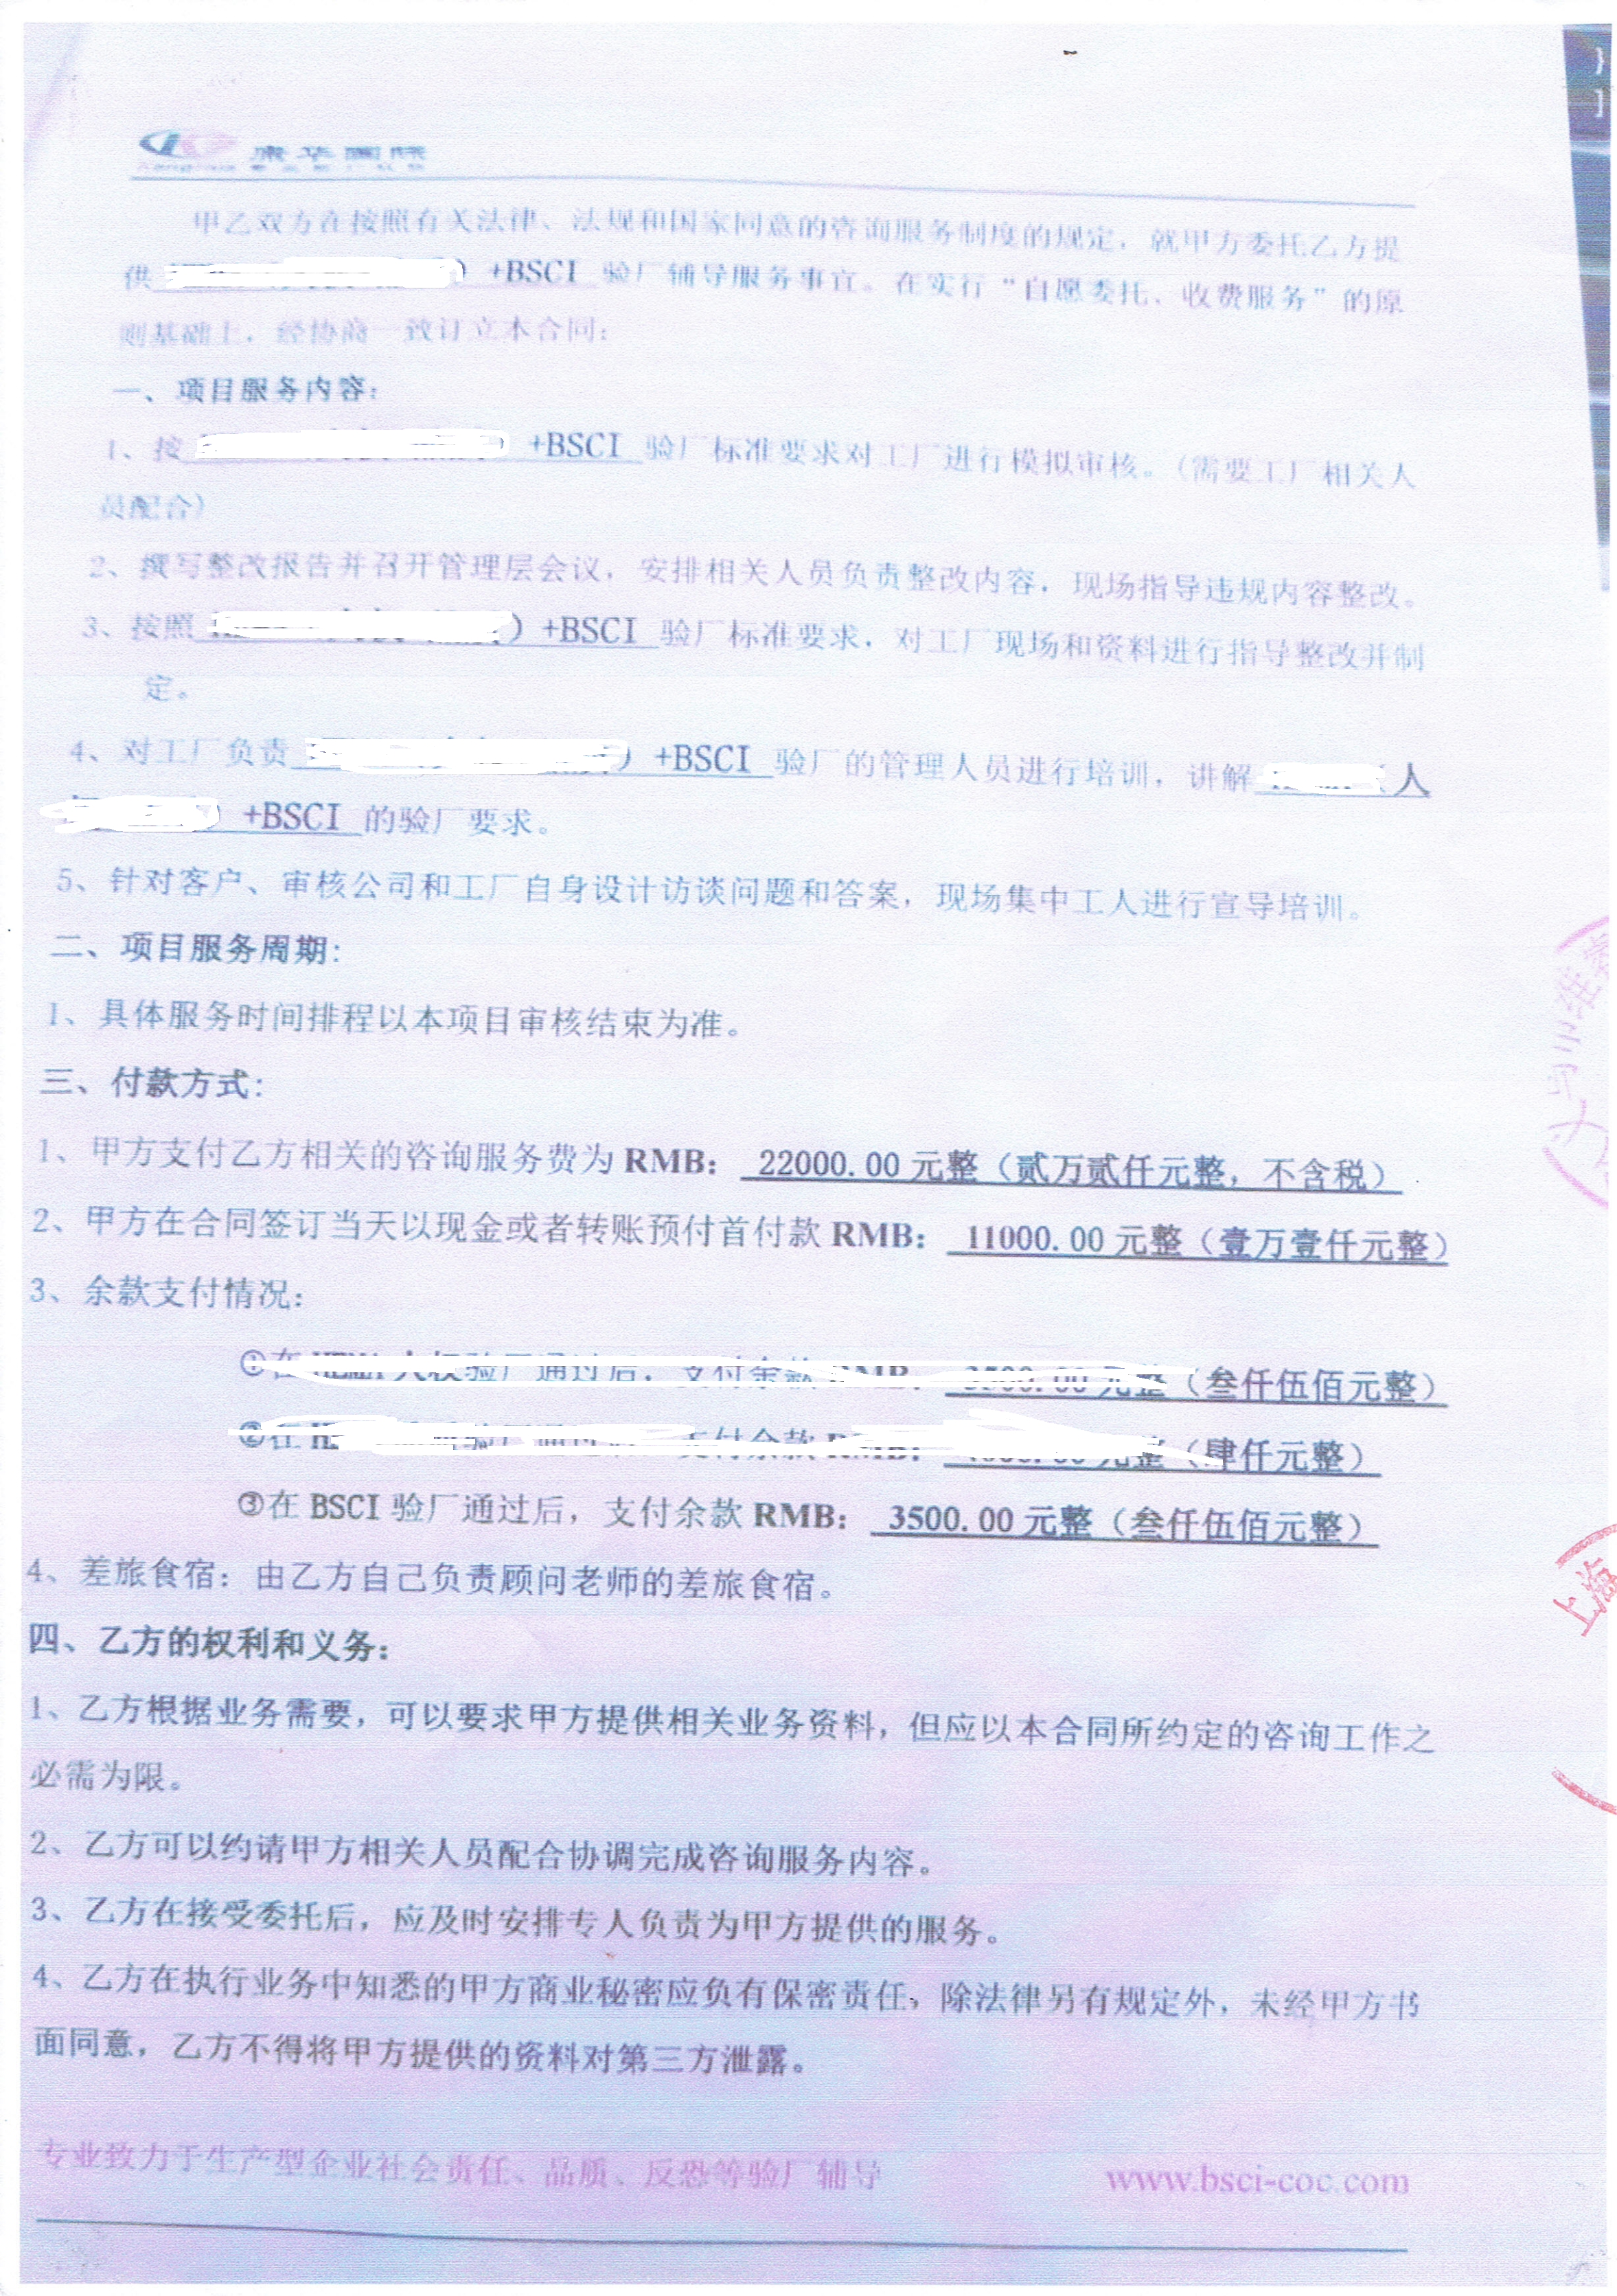 甲乙双方在按照有关法律、法规和国家同意的咨询服务制度的规定，就甲方委托乙方提
供 ）+BSCI 验厂辅导服务事宜。在实行“自愿委托、收费服务”的原
则基础上，经协商一致订立本合同：
一、项目服务内容：
1、按 +BSCI 验厂标准要求对工厂进行模拟审核。（需要工厂相关人
员配合）
2、撰写整改报告并召开管理层会议，安排相关人员负责整改内容，现场指导违规内容整改。
3、按照 ）+BSCI 验厂标准要求，对工厂现场和资料进行指导整改并制
定。
4、对工厂负责 ）+BSCI 验厂的管理人员进行培训，讲解 人
）+BSCI 的验厂要求。
5、针对客户、审核公司和工厂自身设计访谈问题和答案，现场集中工人进行宣导培训。
二、项目服务周期：
1、具体服务时间排程以本项目审核结束为准。
三、付款方式：
1、甲方支付乙方相关的咨询服务费为 RMB： 22000.00 元整（贰万贰仟元整，不含税）
2、甲方在合同签订当天以现金或者转账预付首付款 RMB： 11000.00 元整（壹万壹仟元整）
3、余款支付情况：
①在 验厂通过后，支付余款 RMB： 3500.00 元整（叁仟伍佰元整）
②在 验厂通过 支付余款 RMB： 元整（肆仟元整）
③在 BSCI 验厂通过后，支付余款 RMB： 3500.00 元整（叁仟伍佰元整）
4、差旅食宿：由乙方自己负责顾问老师的差旅食宿。
四、乙方的权利和义务：
1、乙方根据业务需要，可以要求甲方提供相关业务资料，但应以本合同所约定的咨询工作之
必需为限。
2、乙方可以约请甲方相关人员配合协调完成咨询服务内容。
3、乙方在接受委托后，应及时安排专人负责为甲方提供的服务。
4、乙方在执行业务中知悉的甲方商业秘密应负有保密责任，除法律另有规定外，未经甲方书
面同意，乙方不得将甲方提供的资料对第三方泄露。
上海
专业致力于生产型企业社会责任、品质、反恐等验厂辅导 www.bsci-coc.com